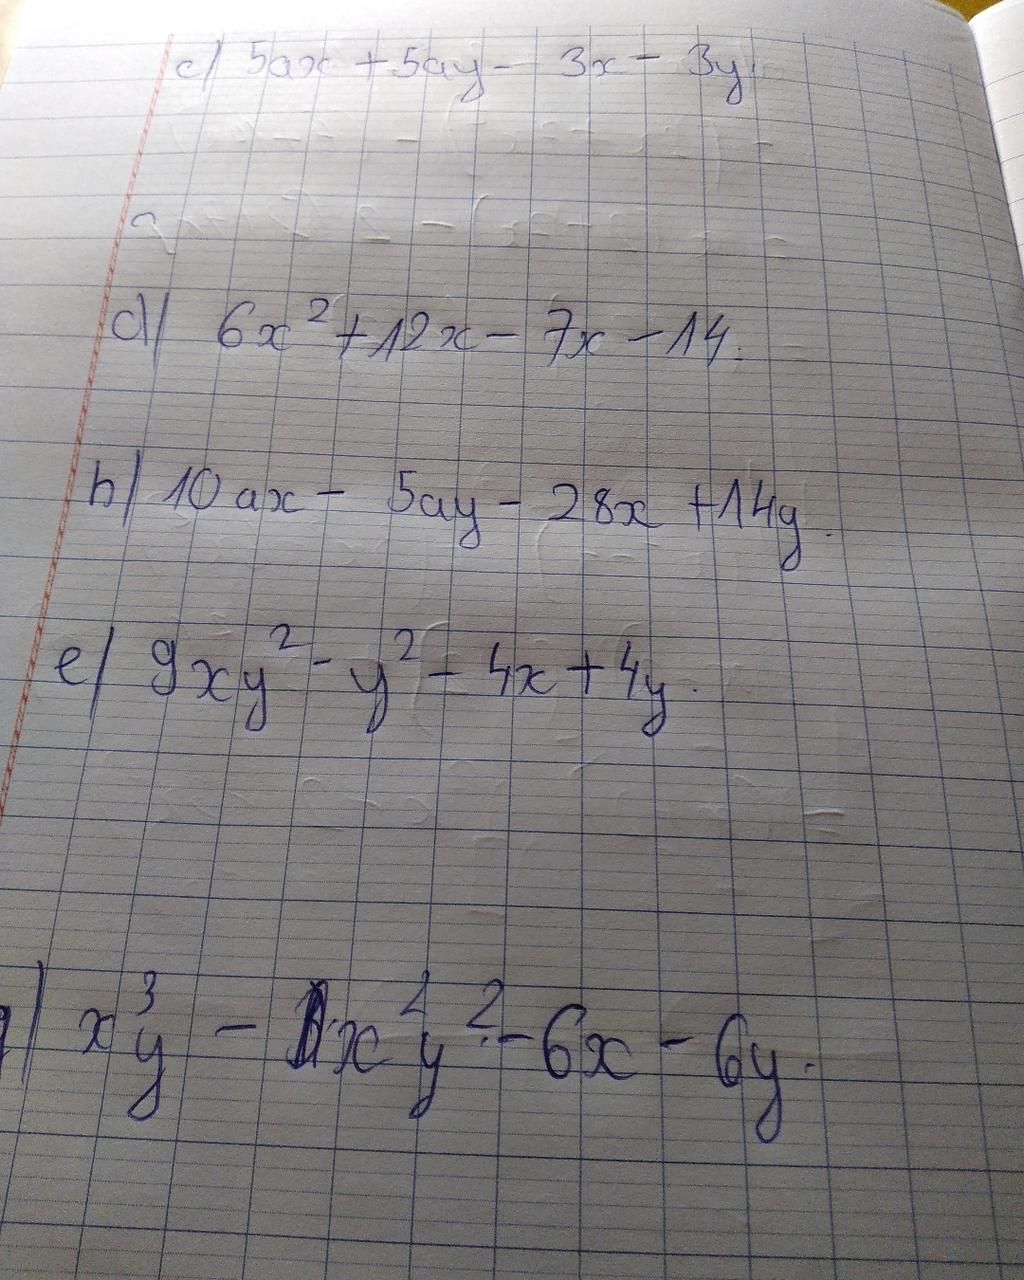 c/ 5ax + 5ay - 3x - 3y.
d/ 6x² + 12x - 7x - 14.
b/ 10ax - 5ay - 28x + 14y.
e/ 9xy² - y² - 4x + 4y.
x³y - x²y² - 6x - 6y.